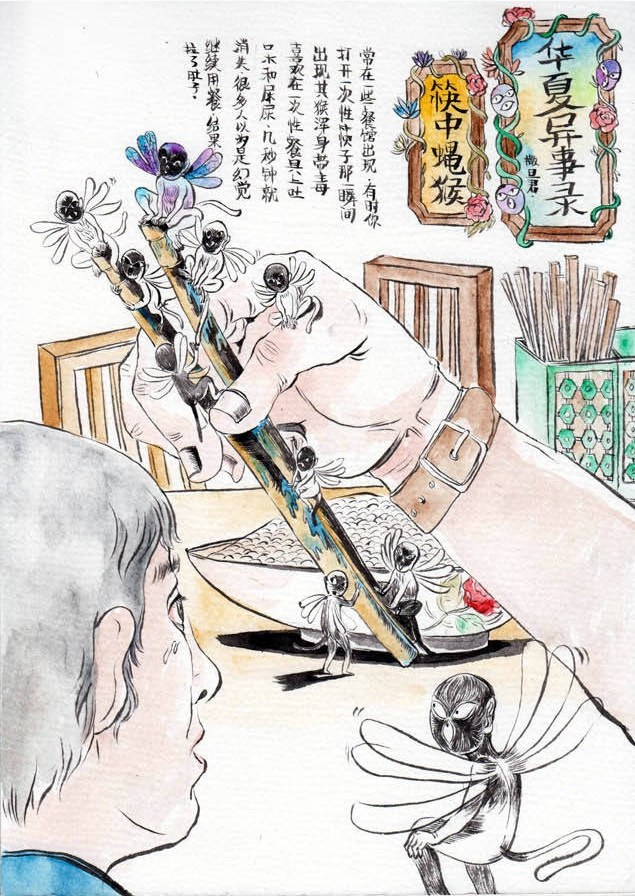 华夏异事录
撒旦君·
筷中蝇猴
常在一些餐馆出现·有时你
打开一次性筷子那一瞬间
出现·其猴浑身带毒
喜欢在一次性餐具上吐
口水和尿尿·几秒钟就
消失·很多人以为是幻觉
继续用餐·结果
拉了肚子·